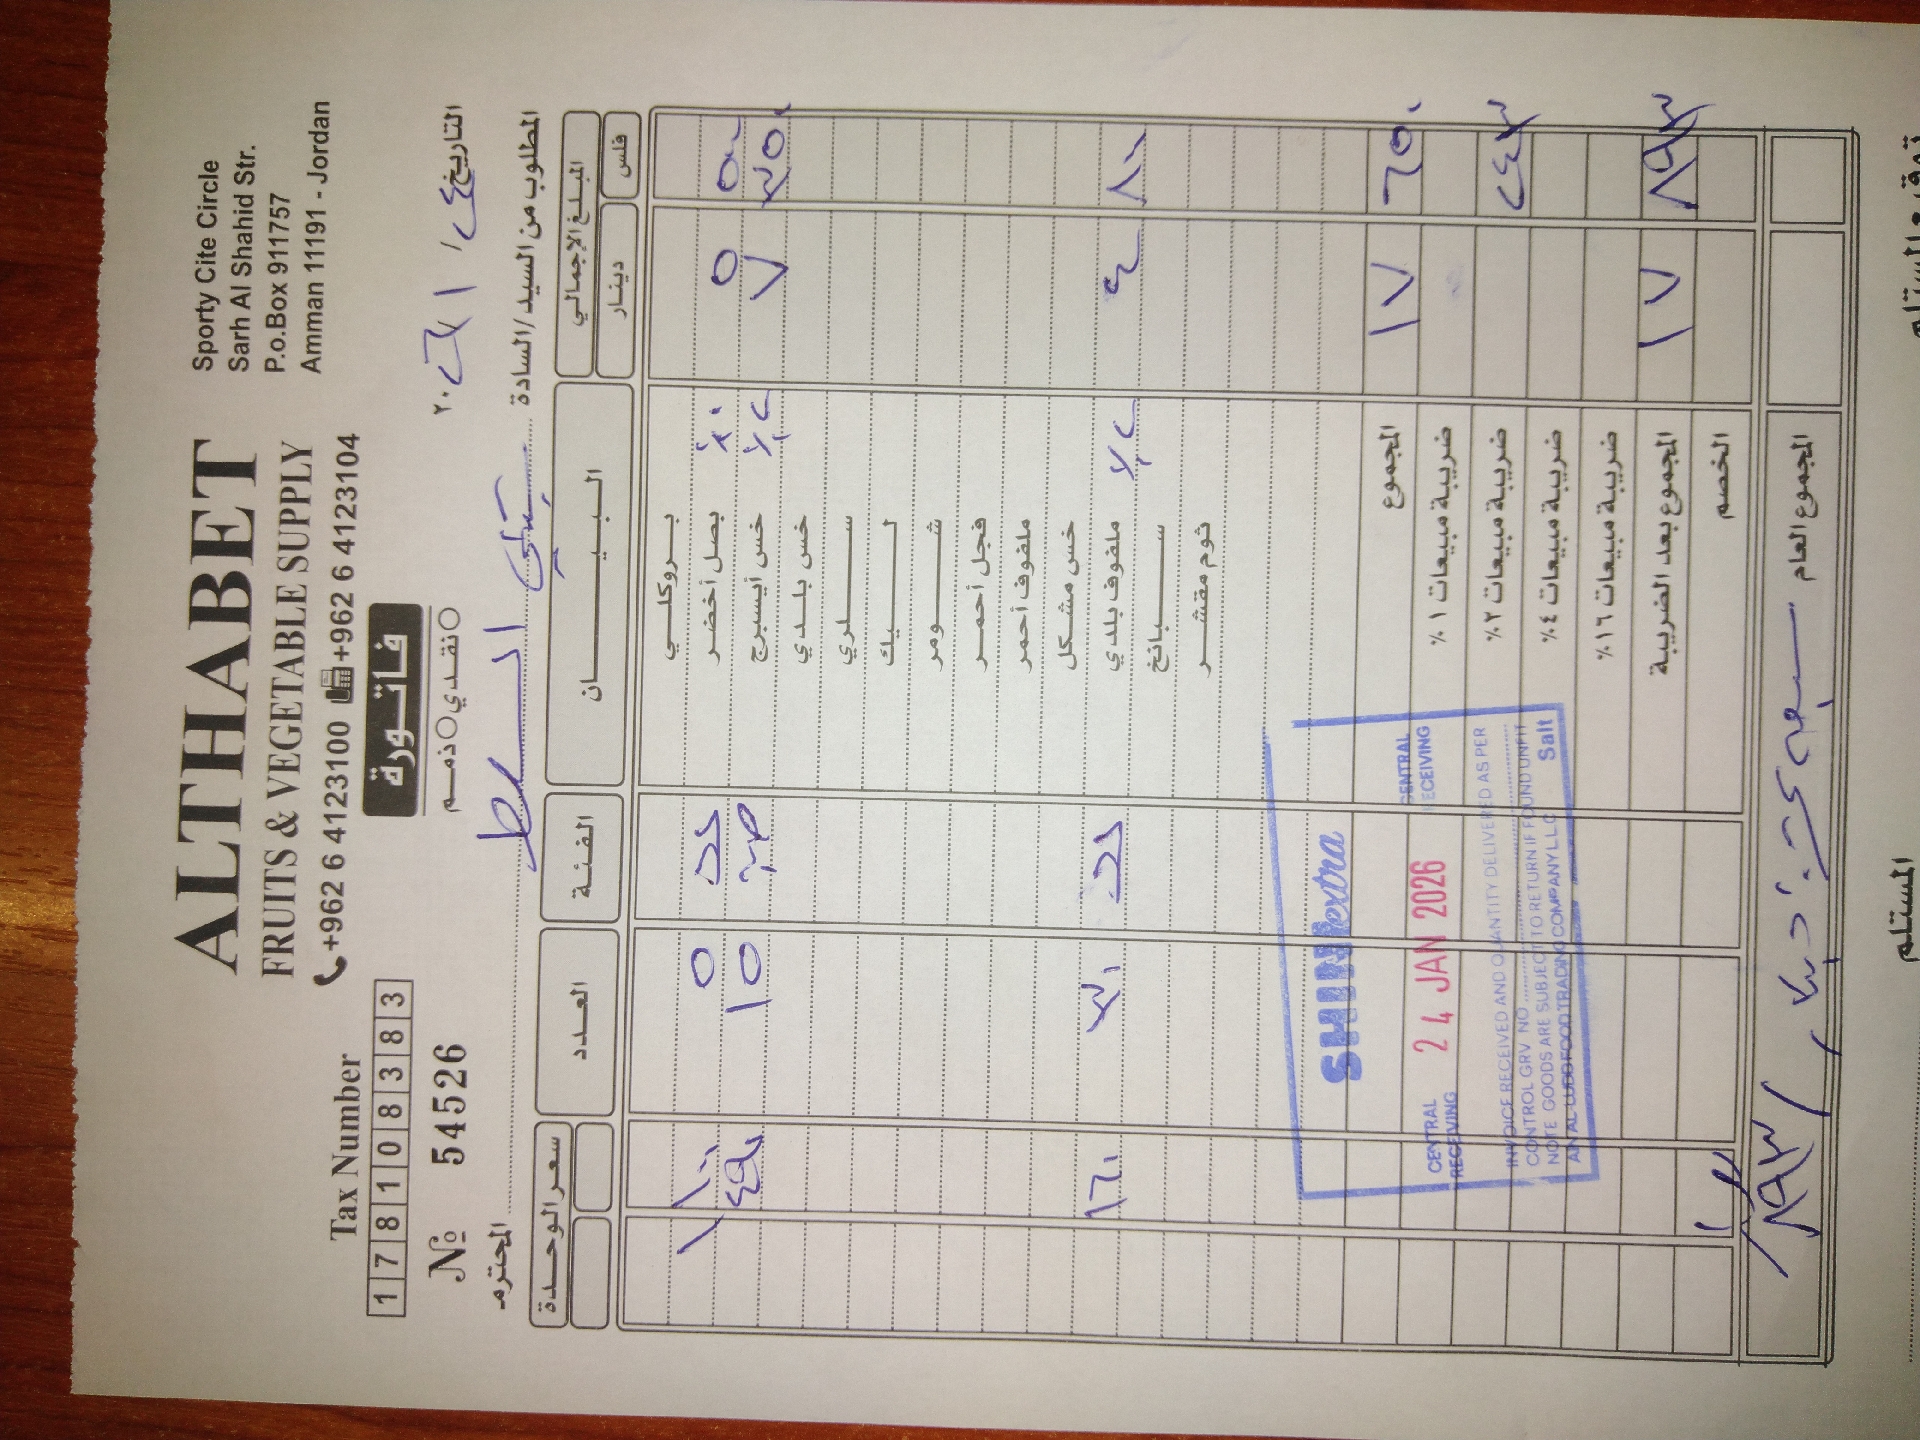 ALTHABET
FRUITS & VEGETABLE SUPPLY
+962 6 4123100 +962 6 4123104
Sporty Cite Circle
Sarh Al Shahid Str.
P.o.Box 911757
Amman 11191 - Jordan
Tax Number
1 7 8 1 0 8 3 8 3
فاتورة
№ 54526
ذمم نقدي
التاريخ ٢٤ / ١ / ٢٠٢٦
المطلوب من السيد/السادة السلط المحترم
المبلغ الإجمالي البيــــان الفئة العدد سعر الوحدة
فلس دينار
بروكلي
٥٠٠ ٥ بصل أخضر ٪٠ ٥ ١ ١٠٠
٣٥٠ ٧ خس أيسبرج ٪٢ ١٥ ٤٩٠
خس بلدي
سلري
ليك
شومر
فجل أحمر
ملفوف أحمر
خس مشكل
٨٠٠ ٤ ملفوف بلدي ٪٢ ٣٠ ١٦٠
سبانخ
ثوم مقشر
٦٥٠ ١٧ المجموع
ضريبة مبيعات ١٪
٢٤٣ ضريبة مبيعات ٢٪
ضريبة مبيعات ٤٪
ضريبة مبيعات ١٦٪
٨٩٣ ١٧ المجموع بعد الضريبة
الخصم
المجموع العام
SHINI extra
CENTRAL RECEIVING
24 JAN 2026
CENTRAL RECEIVING
INVOICE RECEIVED AND QUANTITY DELIVERED AS PER
CONTROL GRV. NO. ....................
NOTE GOODS ARE SUBJECT TO RETURN IF FOUND UNFIT
FOOD TRADING COMPANY LLC Salt
المستلم
توقيع المستلم